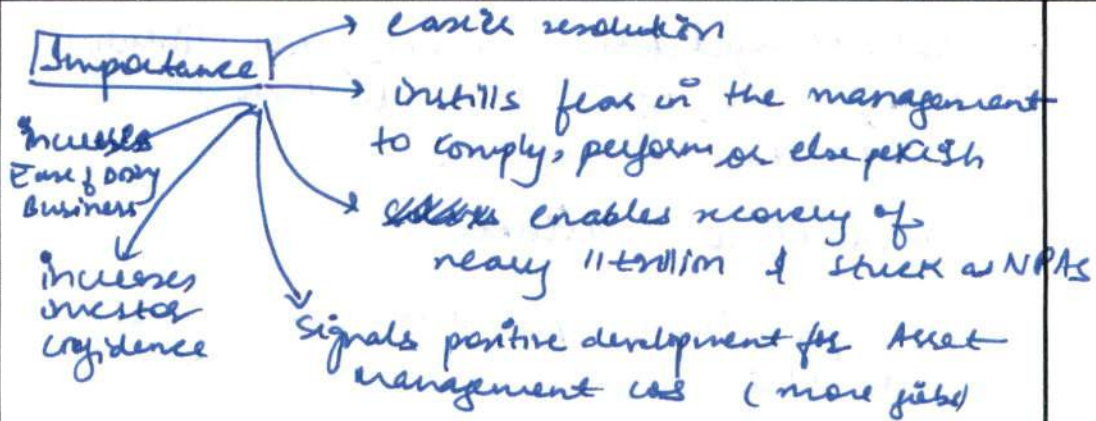 Importance
easier resolution
instills fear in the management
to comply, perform or else perish
enables recovery of
nearly 11 trillion stuck as NPAs
Signals positive development for Asset
management cos (more jobs)
increases
investor
confidence
increases
Ease of Doing
Business